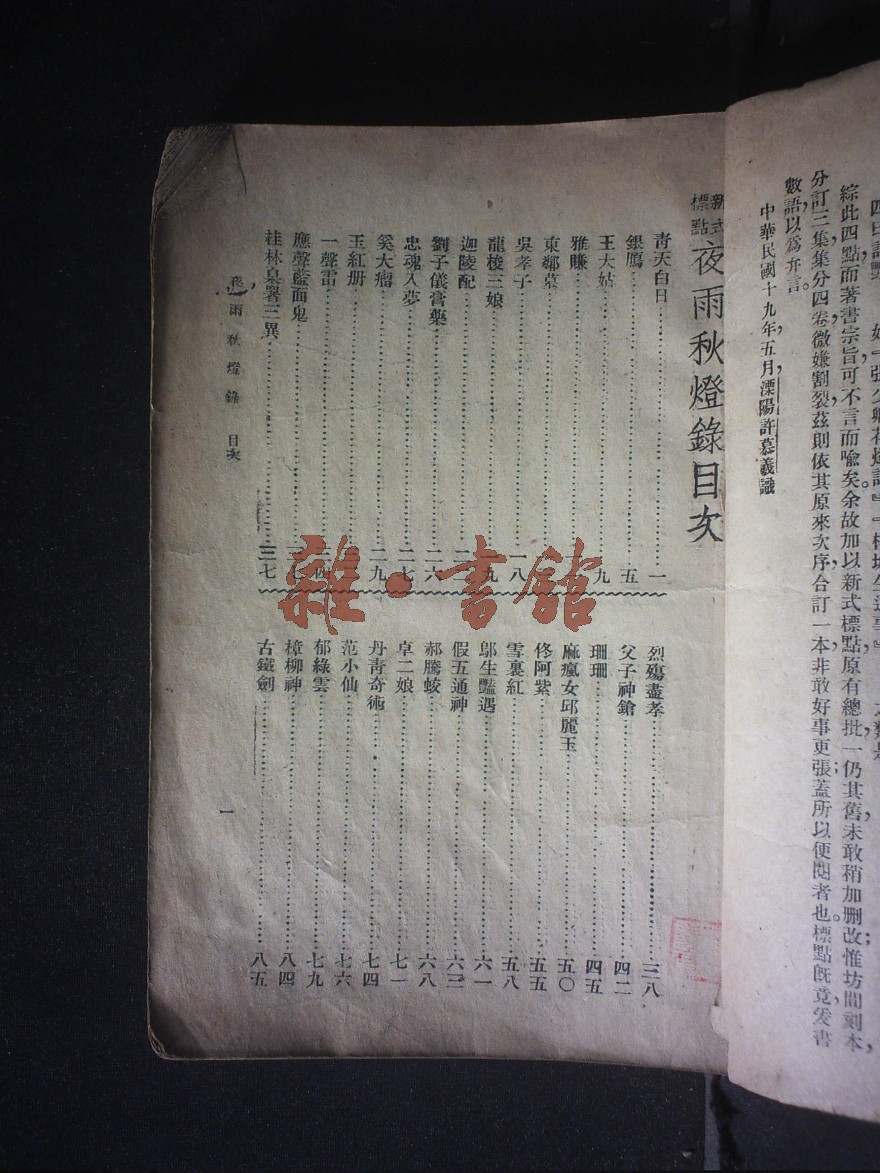 綜此四點而著書宗旨可不言而喩矣。余故加以新式標點原有總批一仍其舊未敢稍加删改；惟坊間刻本，
分訂三集集分四卷微嫌割裂茲則依其原來次序合訂一本非敢好事更張蓋所以便閱者也。標點旣竟爰書
數語，以爲弁言。
中華民國十九年，五月，溧陽許慕羲識
新式標點夜雨秋燈錄目次
靑天白日 一
銀鴈 五
王大姑 九
雅賺
東鄰墓
吳孝子 一八
龍梭三娘 一九
迦陵配
劉子儀膏藥 二六
忠魂入夢 二七
奚大瘤 二九
玉紅册
一聲雷 三四
應聲藍面鬼
桂林臬署三異 三七
烈殤盡孝 三八
父子神鎗 四二
珊珊 四五
麻瘋女邱麗玉 五〇
佟阿紫 五五
雪裏紅 五八
鄔生豔遇 六一
假五通神 六三
郝騰蛟 六八
卓二娘 七一
丹靑奇術 七四
范小仙 七六
郁綠雲 七九
樟柳神 八四
古鐵劍 八五
夜雨秋燈錄 目次
一
雜·書館